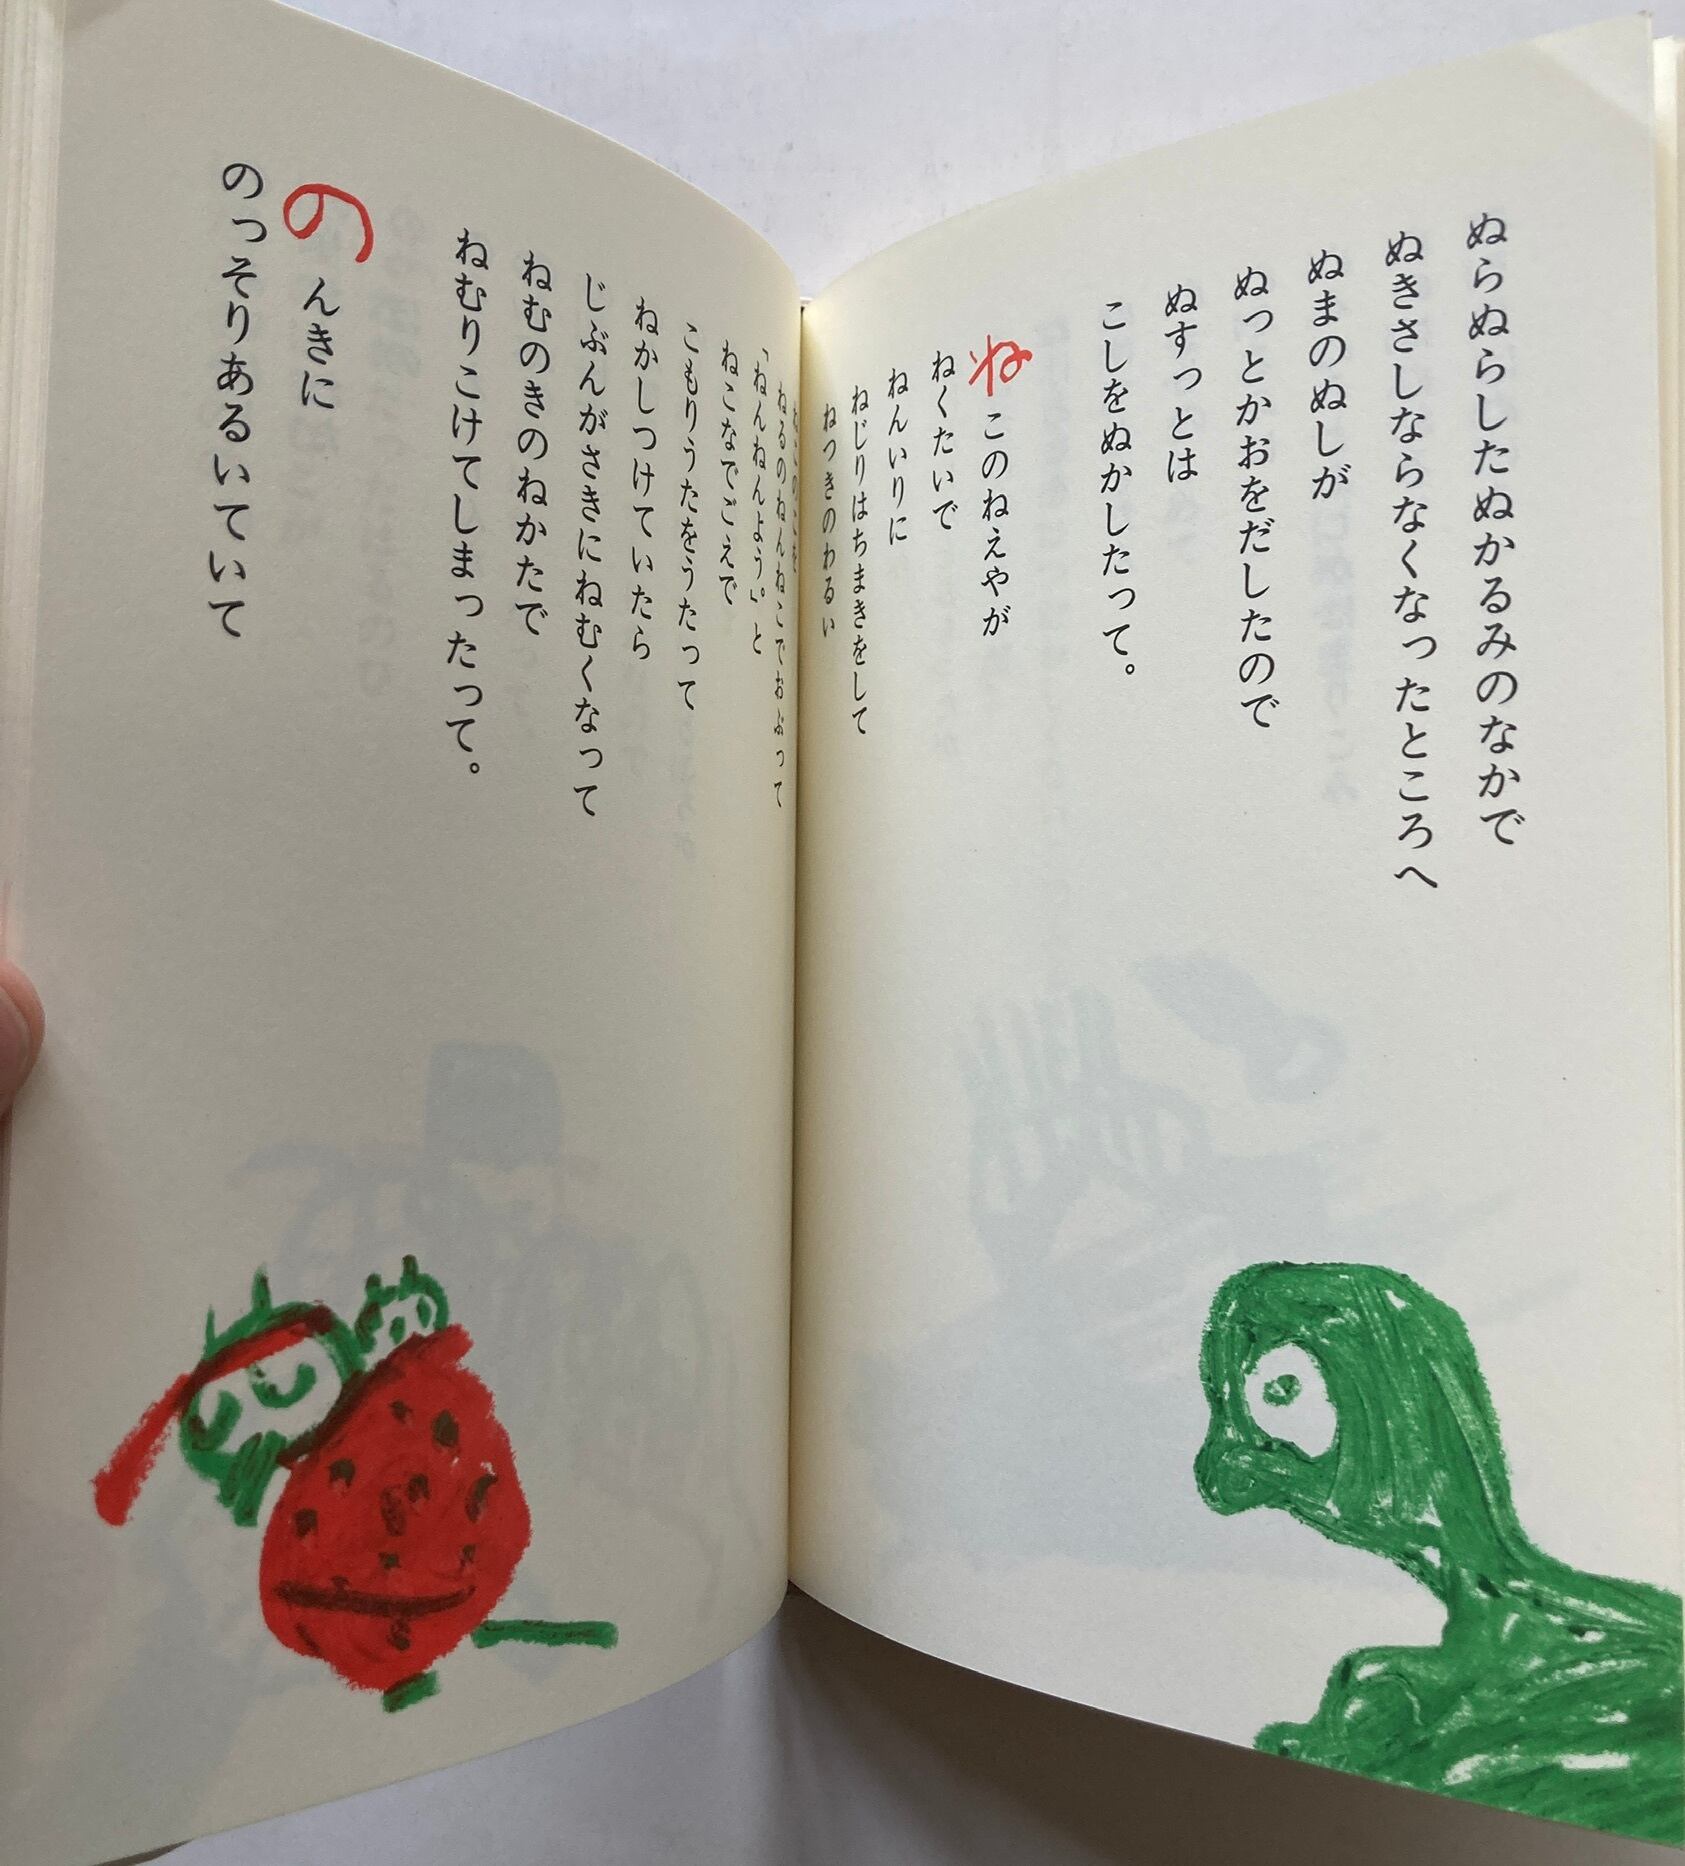 ぬらぬらしたぬかるみのなかで
ぬきさしならなくなったところへ
ぬまのぬしが
ぬっとかおをだしたので
ぬすっとは
こしをぬかしたって。
ねこのねえやが
ねくたいで
ねんいりに
ねじりはちまきをして
ねつきのわるい
ねるのねんねこでおぶって
「ねんねんよう。」と
ねこなでごえで
こもりうたをうたって
ねかしつけていたら
じぶんがさきにねむくなって
ねむのきのねかたで
ねむりこけてしまったって。
のんきに
のっそりあるいていて